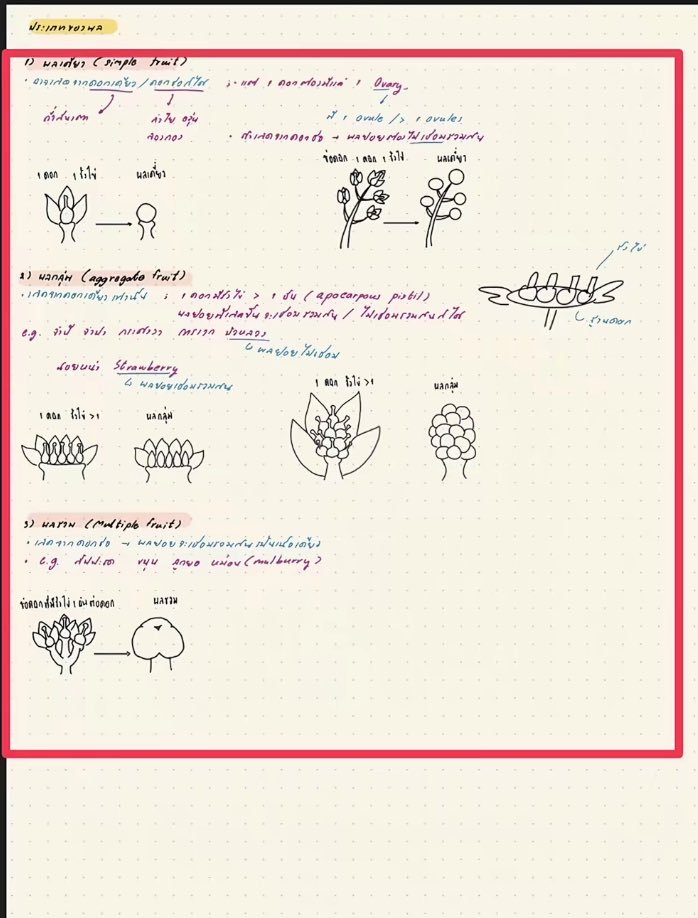 ประเภทของผล
1) ผลเดี่ยว (simple fruit)
• อาจเกิดจากดอกเดี่ยว / ดอกช่อก็ได้ ; แต่ 1 ดอกต้องมีแค่ 1 Ovary
ลำไย องุ่น มี 1 ovule / > 1 ovules
ลองกอง • ถ้าเกิดจากดอกช่อ → ผลย่อยต้องไม่เชื่อมรวมกัน
ช่อดอก 1 ดอก 1 รังไข่ ผลเดี่ยว
1 ดอก 1 รังไข่ ผลเดี่ยว
รังไข่
2) ผลกลุ่ม (aggregate fruit)
• เกิดจากดอกเดี่ยวเท่านั้น ; 1 ดอกมีรังไข่ > 1 อัน (apocarpous pistil)
ผลย่อยที่เกิดขึ้นจะเชื่อมรวมกัน / ไม่เชื่อมรวมกันก็ได้
ฐานดอก
e.g. จำปี จำปา กระดังงา การเวก บัวหลวง
ผลย่อยไม่เชื่อม
น้อยหน่า Strawberry
ผลย่อยเชื่อมรวมกัน
1 ดอก รังไข่ >1 ผลกลุ่ม
1 ดอก รังไข่ >1 ผลกลุ่ม
3) ผลรวม (Multiple fruit)
• เกิดจากดอกช่อ → ผลย่อยจะเชื่อมรวมกันเป็นเนื้อเดียว
• e.g. สับปะรด ขนุน ลูกยอ หม่อน (mulberry)
ช่อดอกที่มีรังไข่ 1 อันต่อดอก ผลรวม